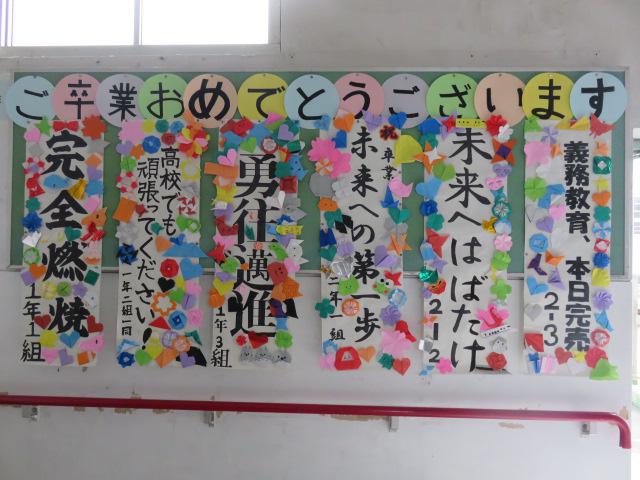 ご卒業おめでとうございます
完全燃焼
1年1組
高校でも
頑張ってください!
一年二組一同
勇往邁進
1年3組
祝 卒業
未来への第一歩
二年一組
未来へはばたけ
2-2
義務教育、本日完売
2-3